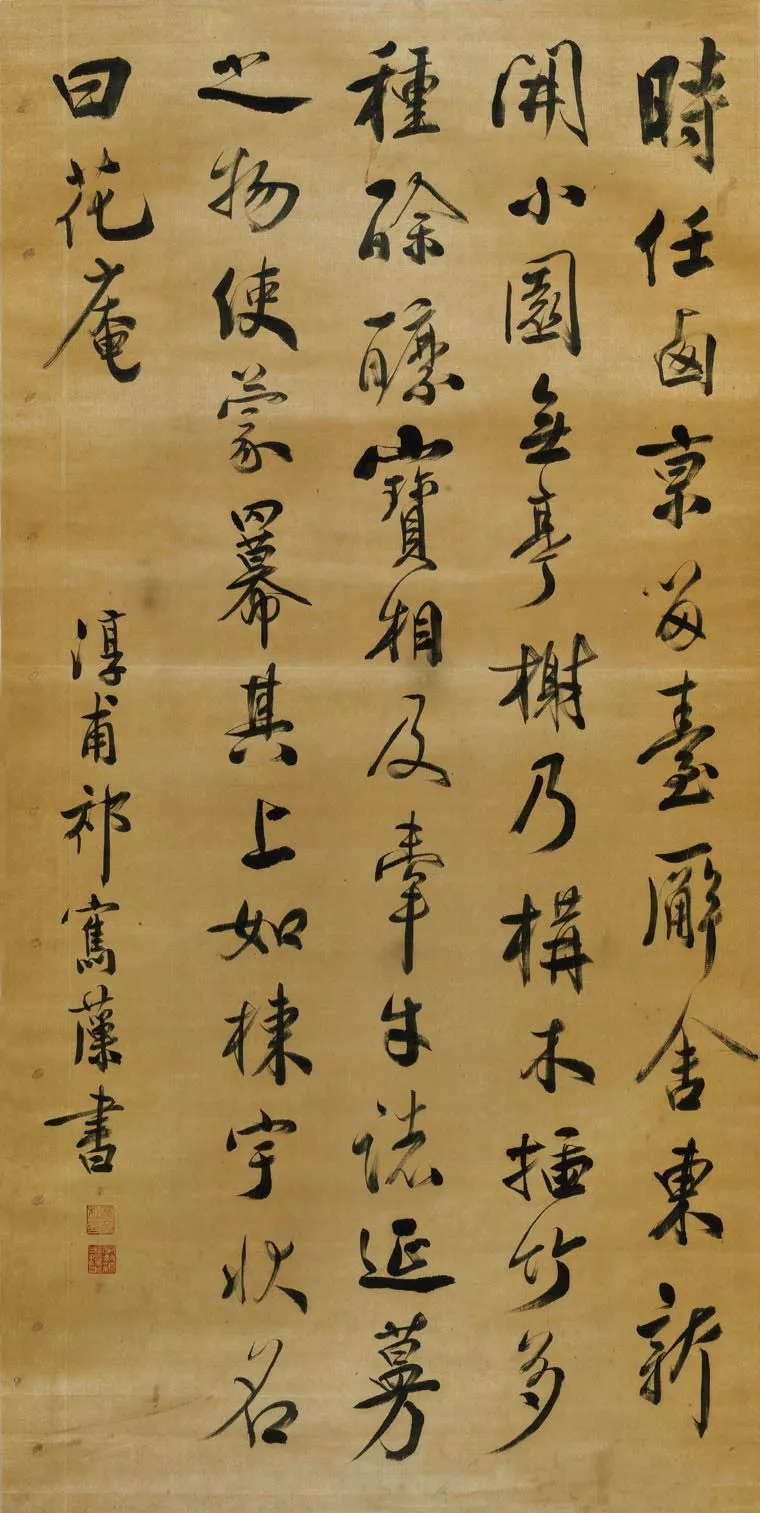 時任鹵京留臺廨舍東新
開小園無亭榭乃構木插竹多
種酴醿寶相及牽牛諸延蔓
之物使蒙羃其上如棟宇狀名
曰花庵
淳甫祁寯藻書